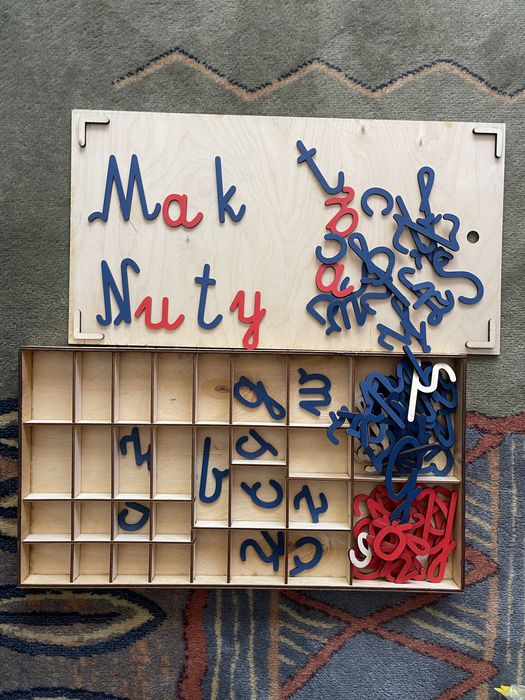 Mak
Nuty